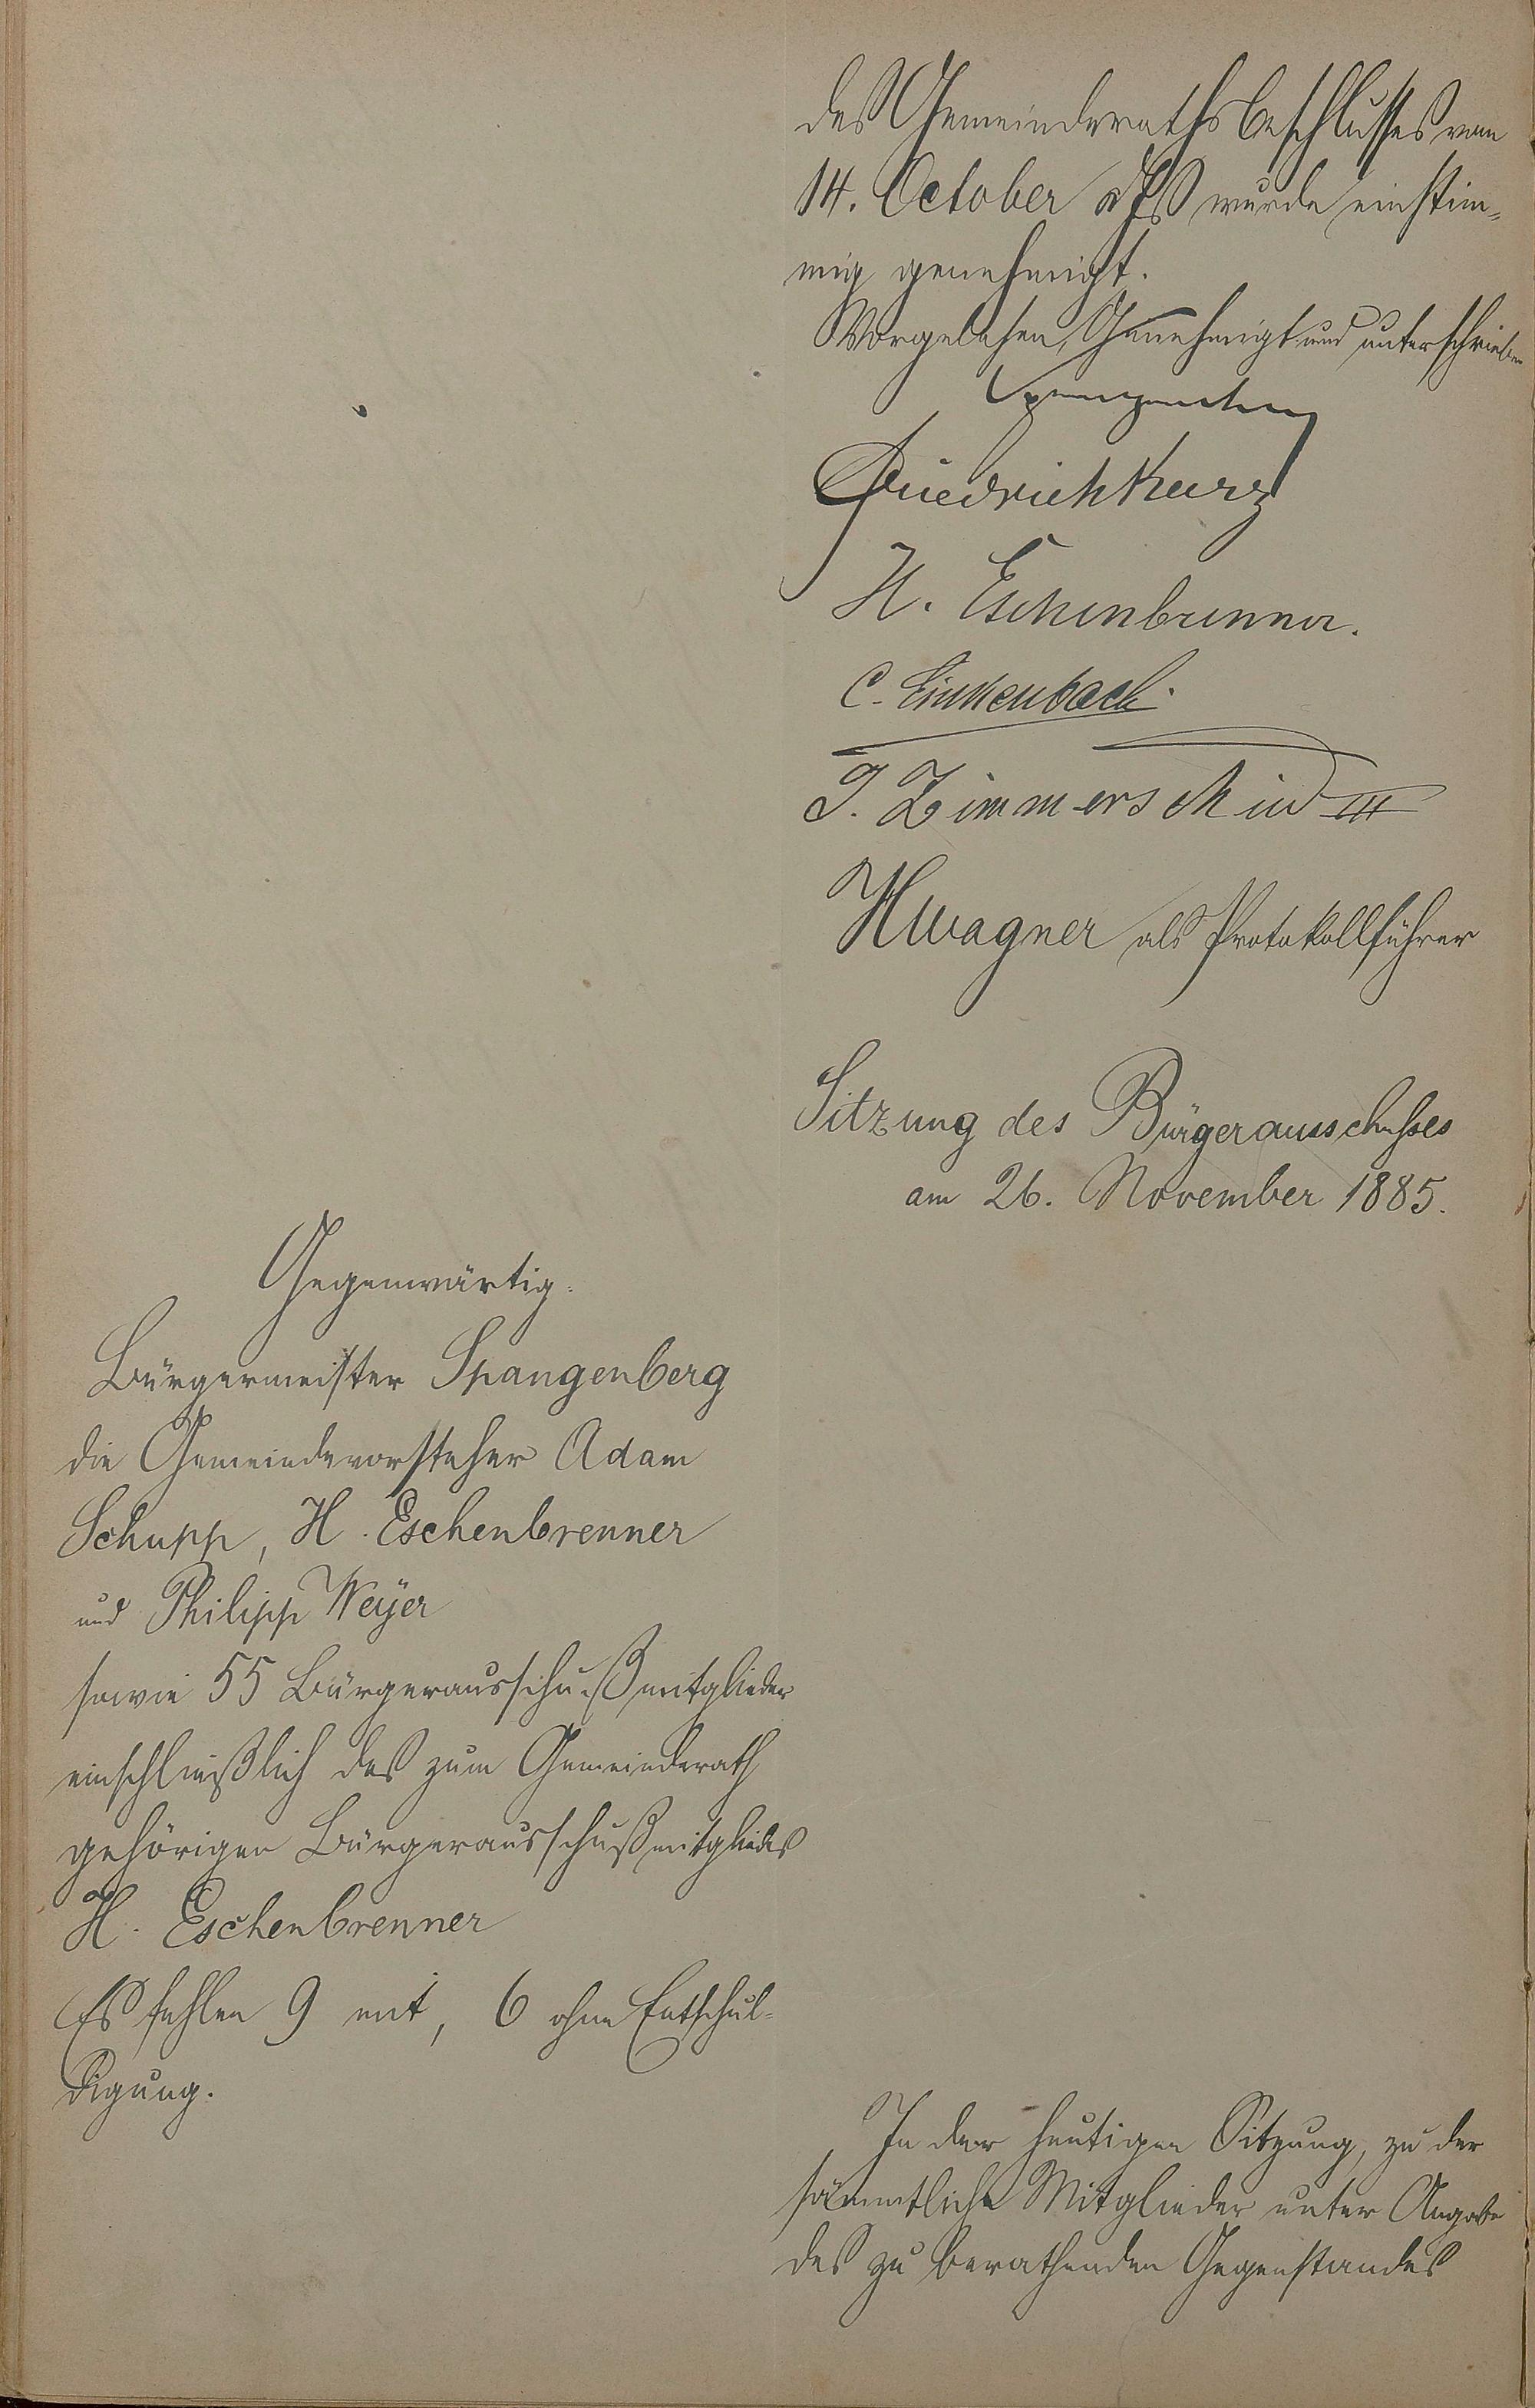 des Gemeinderathsbeschlusses vom
14. October ds Js wurde einstim-
mig genehmigt.
Vorgelesen, Genehmigt und unterschrieben
Spangenberg
Friedrich Kurz
H. Eschenbrenner.
C. Linkenbach.
J. Zimmerschied III
HWagner als Protokollführer
Sitzung des Bürgerausschusses
am 26. November 1885.
Gegenwärtig:
Bürgermeister Spangenberg
die Gemeindevorsteher Adam
Schupp, H. Eschenbrenner
und Philipp Weÿer
sowie 55 Bürgerausschußmitglieder
einschließlich des zum Gemeinderath
gehörigen Bürgerausschußmitglieds
H. Eschenbrenner
Es fehlen 9 mit, 6 ohne Entschul-
digung.
In der heutigen Sitzung, zu der
sämmtliche Mitglieder unter Angabe
des zu berathenden Gegenstandes